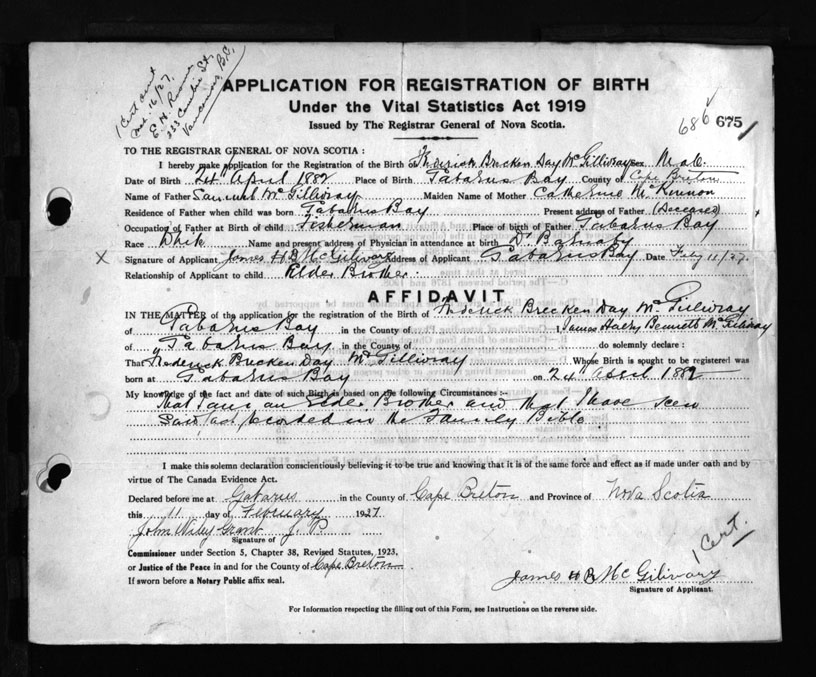 1 Cert sent
16/27.
E. H.
333 Cambie St.
Vancouver, B.C.
APPLICATION FOR REGISTRATION OF BIRTH
Under the Vital Statistics Act 1919
Issued by The Registrar General of Nova Scotia.
686
675
TO THE REGISTRAR GENERAL OF NOVA SCOTIA :
I hereby make application for the Registration of the Birth of Frederick Brecken Day McGillivray Sex Male.
Date of Birth 24th April 1882 Place of Birth Gabarus Bay County of Cape Breton
Name of Father Samuel McGillivray Maiden Name of Mother Catherine McKinnon
Residence of Father when child was born Gabarus Bay Present address of Father (Deceased)
Occupation of Father at Birth of child Fisherman Place of birth of Father Gabarus Bay
Race White Name and present address of Physician in attendance at birth Dr Barnaby
X Signature of Applicant James H B McGilivary Address of Applicant Gabarus Bay. Date Feby 11/27.
Relationship of Applicant to child Elder Brother.
AFFIDAVIT
IN THE MATTER of the application for the registration of the Birth of Frederick Brecken Day McGillivray
of Gabarus Bay in the County of I James Henry Bennett McGilivray
of Gabarus Bay in the County of do solemnly declare :
That Frederick Brecken Day McGillivray Whose Birth is sought to be registered was
born at Gabarus Bay on 24th April 1882
My knowledge of the fact and date of such Birth is based on the following Circumstances :-
that I am an Elder Brother and that I have seen
said fact recorded in the Family Bible.
I make this solemn declaration conscientiously believing it to be true and knowing that it is of the same force and effect as if made under oath and by
virtue of The Canada Evidence Act.
Declared before me at Gabarus in the County of Cape Breton and Province of Nova Scotia
this 11 day of February 1927
John Wiley Grant J. P.
Signature of
Commissioner under Section 5, Chapter 38, Revised Statutes, 1923,
or Justice of the Peace in and for the County of Cape Breton
If sworn before a Notary Public affix seal.
1 Cert.
James H B McGilivary
Signature of Applicant.
For Information respecting the filling out of this Form, see Instructions on the reverse side.